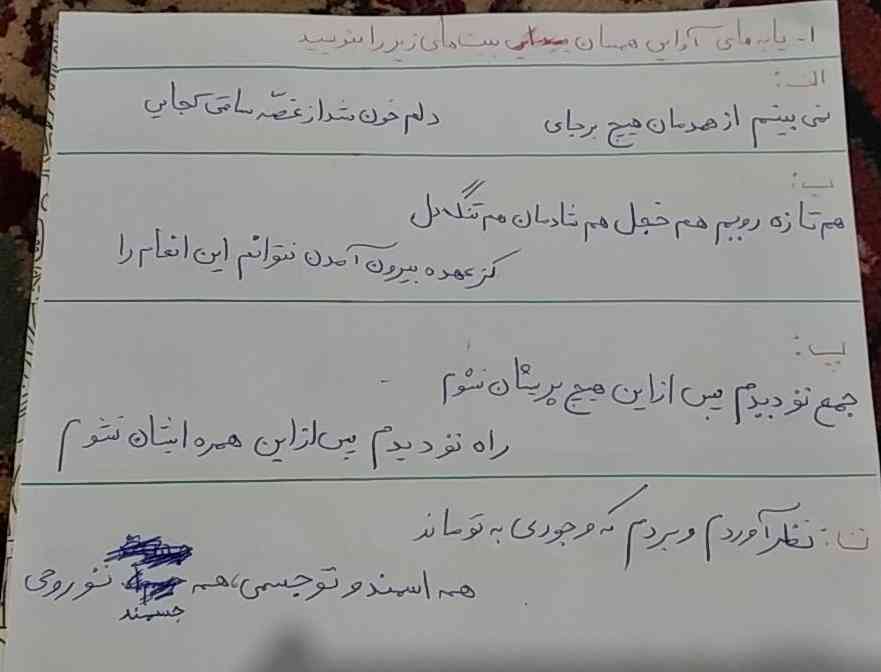 ۱- پایه های آوایی همسان بیت های زیر را بنویسید
الف:
نمی بینم از همدمان هیچ برجای دلم خون شد از غصّه ساقی کجایی
ب:
هم تازه رویم هم خجل هم شادمان هم تنگدل
کز عهده بیرون آمدن نتوانم این انعام را
پ:
جمع تو دیدم پس از این هیچ پریشان نشوم
راه تو دیدم پس از این همره ایشان نشوم
ت: نظر آوردم و بردم که وجودی به تو ماند
همه اسمند و تو جسمی، همه جسمند تو روحی